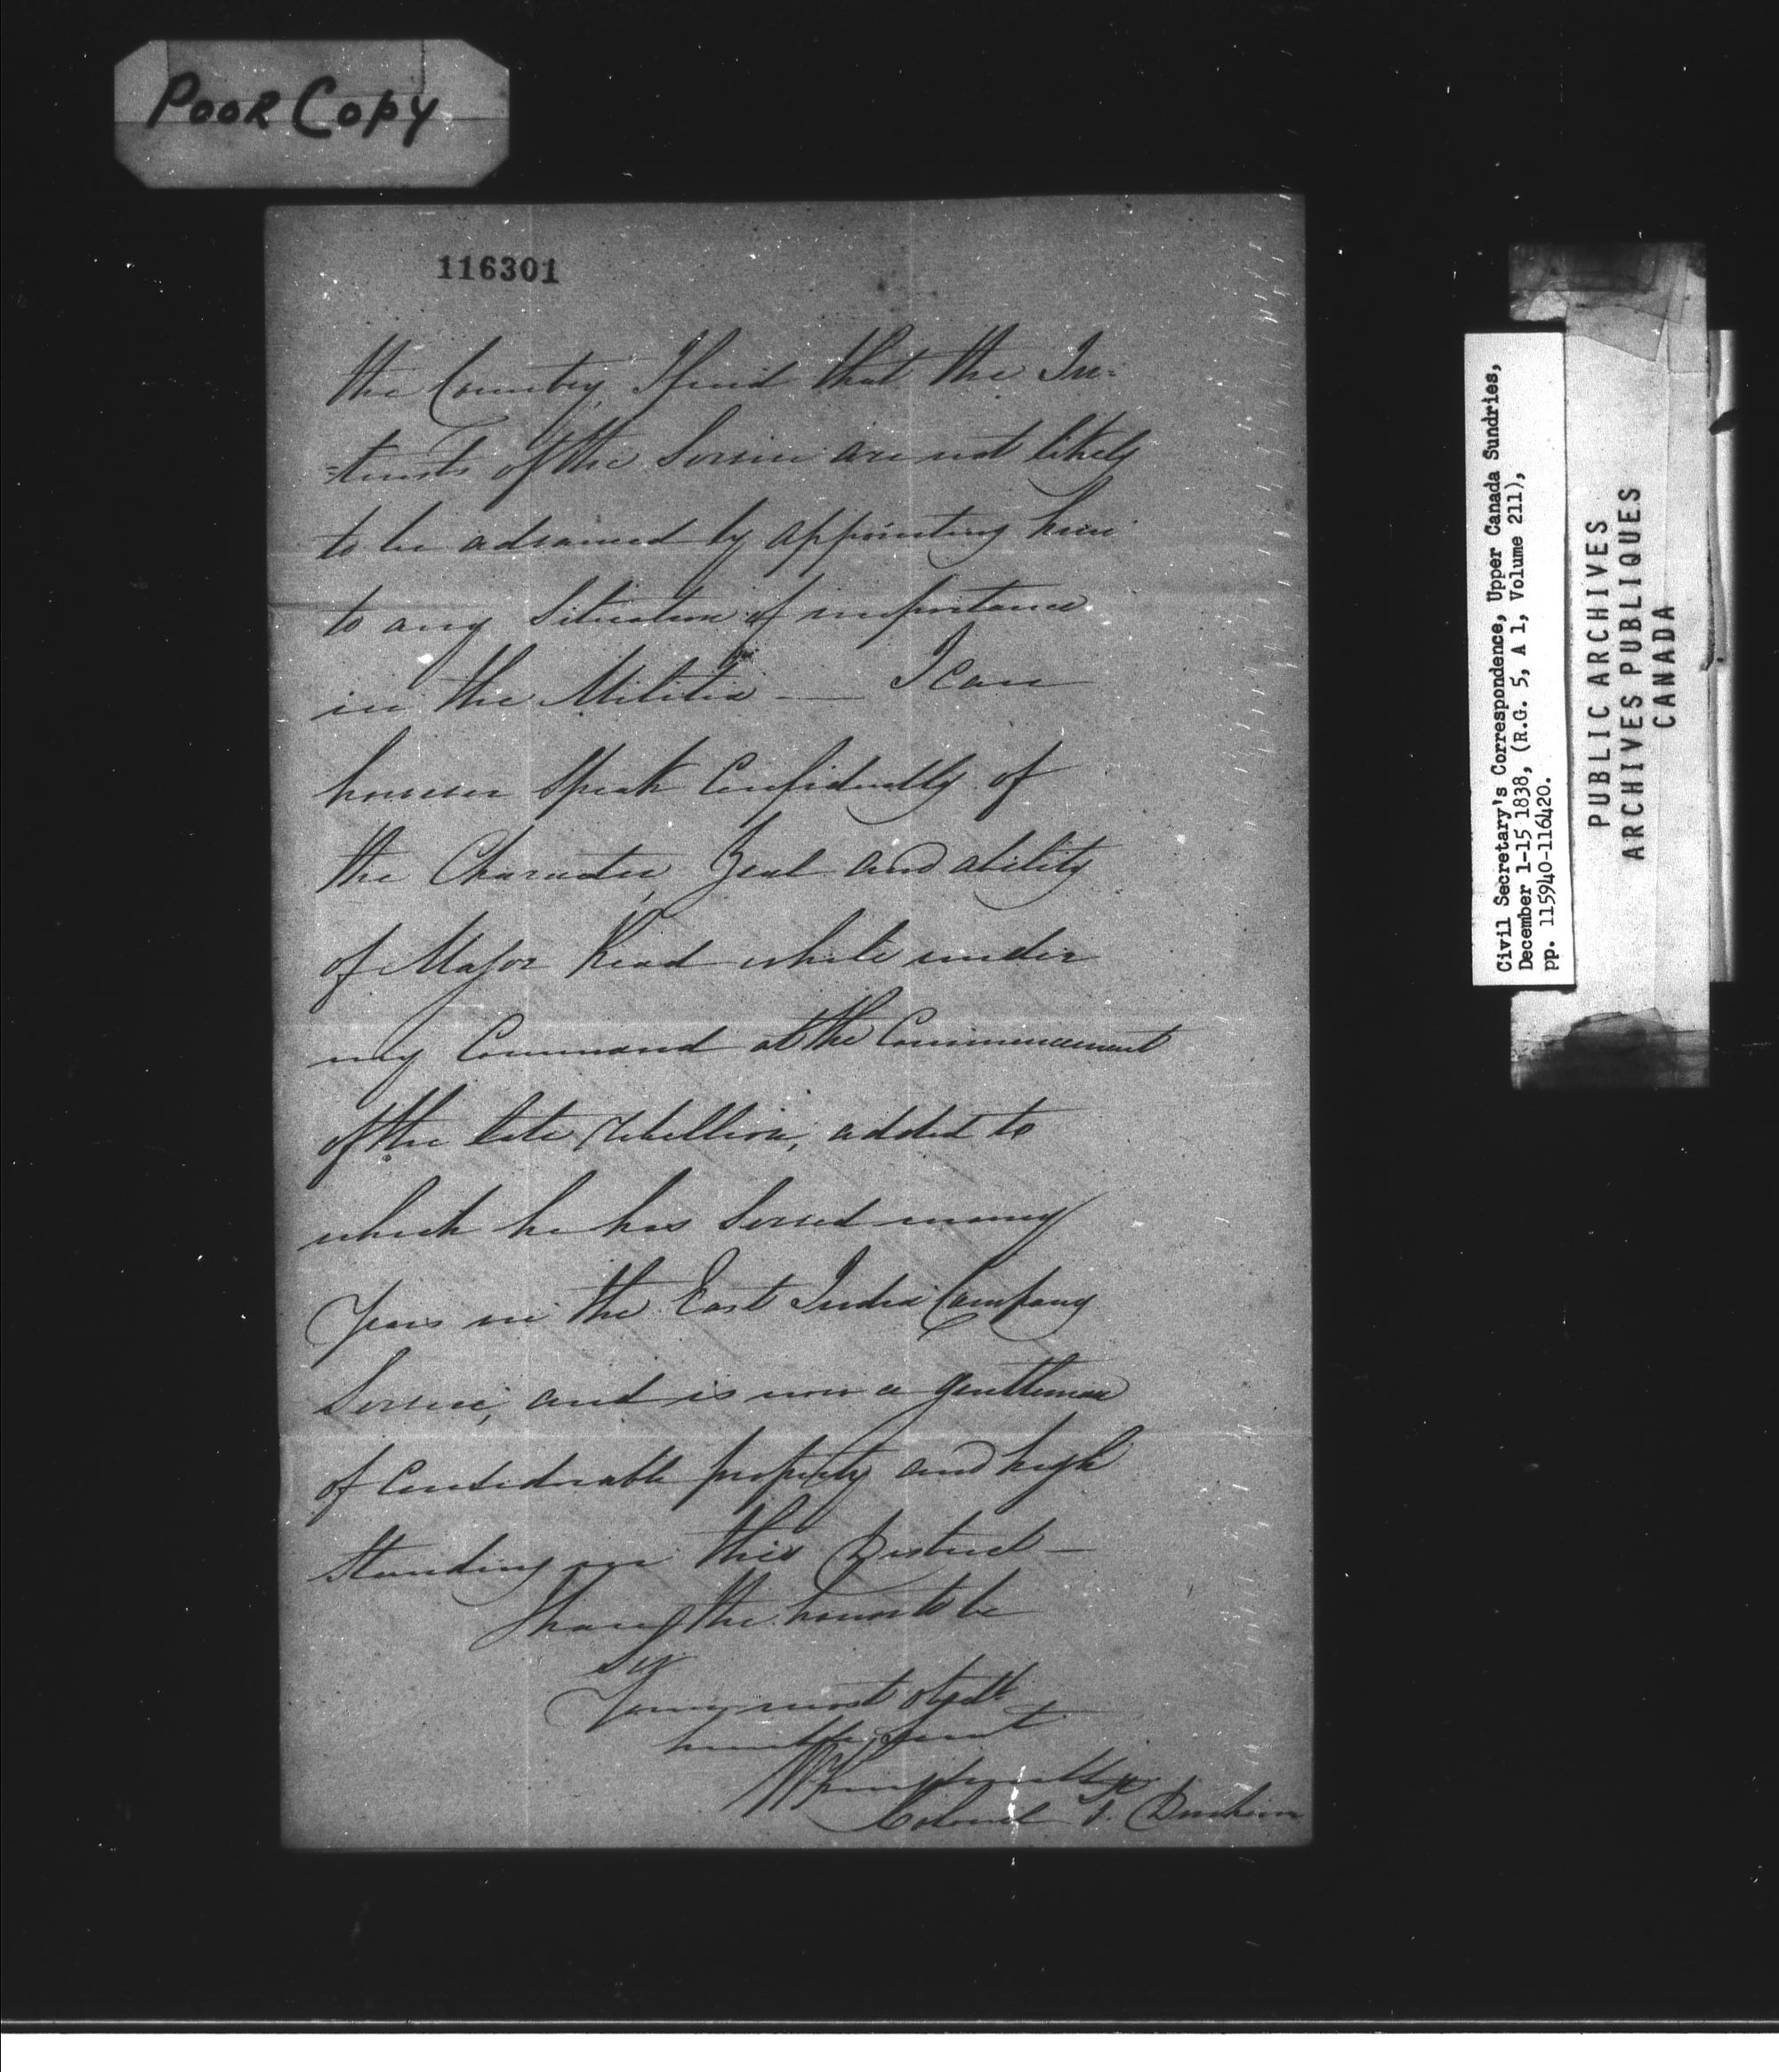 Poor Copy
116301
the Country, I find that the In=
=terests of the Service are not likely
to be advanced by appointing him
to any Situation of importance
in the Militia — I can
however Speak Confidently of
the Character, Zeal and ability
of Major Kead while under
my Command at the Commencement
of the late rebellion, added to
which he has Served many
Years in the East India Company
Service, and is now a gentleman
of Considerable property and high
Standing in this District —
I have the honor to be
Sir
Your most obedt
humble Servt
Colonel 1. Durham
Civil Secretary's Correspondence, Upper Canada Sundries,
December 1-15 1838, (R.G. 5, A 1, Volume 211),
pp. 115940-116420.
PUBLIC ARCHIVES
ARCHIVES PUBLIQUES
CANADA